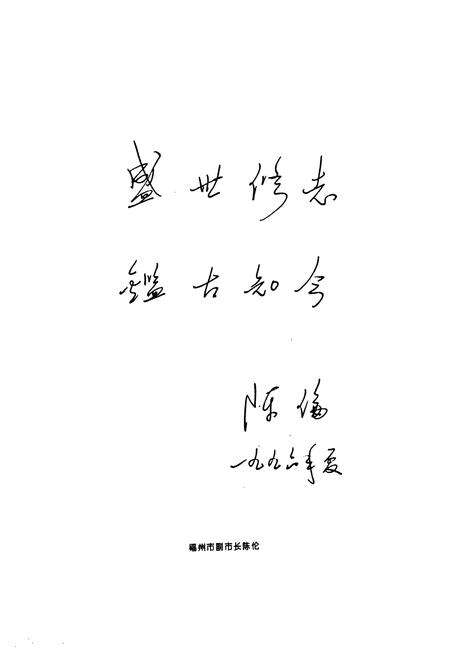 盛世修志
鑑古知今
陈伦
一九九六年夏
福州市副市长陈伦